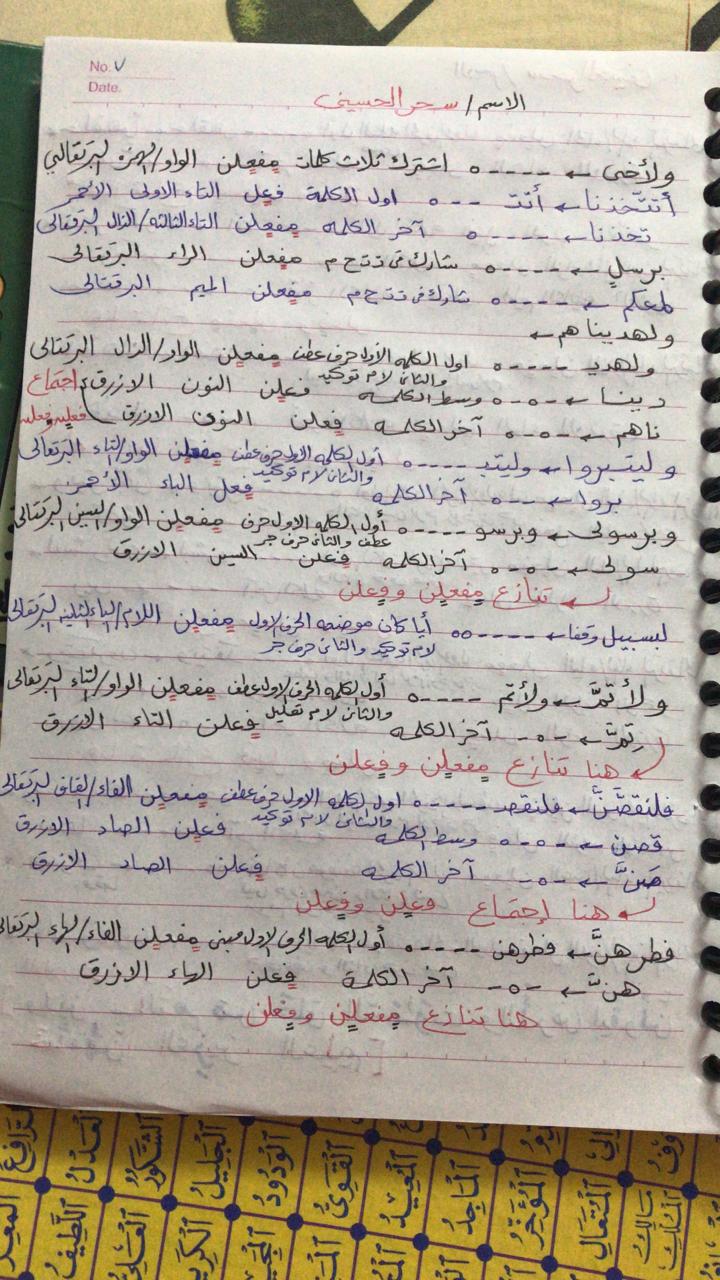 No. ٧
Date.
الاسم / سحر الحسيني
ولأخى ← - - - - ٥ اشترك ثلاث كلمات مفعلن الواو/الهمزه البرتقالي
أتتخذنا ← أتت - - - ٥ اول الكلمة فعل التاء الاولى الأحمر
تخذنا ← - - - - ٥ آخر الكلمه مفعلن التاء الثالثه/الذال البرتقالى
برسلٍ ← - - - - ٥ شارك فى ذ ت ح م مفعلن الراء البرتقالى
لمعكم ← - - - - ٥ شارك فى ذ ت ح م مفعلن الميم البرتقالى
ولهديناهم ←
ولهديـ - - - - ٥ اول الكلمه الأول حرف عطف والثانى لام توكيد مفعلن الواو/الدال البرتقالى
دينا ← - ٥ - ٥ وسط الكلمه فعلن النون الازرق اجتماع
ناهم ← - ٥ - ٥ آخر الكلمه فعلن النون الازرق فعلن وفعلن
وليتبروا ← وليتبـ - - - - ٥ أول الكلمه الاول حرف عطف والثانى لام توكيد مفعلن الواو/التاء البرتقالى
بروا ← - - ٥ آخر الكلمه فعل الباء الأحمر
وبرسولى ← وبرسو - - - - ٥ أول الكلمه الاول حرف عطف والثانى حرف جر مفعلن الواو/السين البرتقالى
سولى ← - ٥ - ٥ آخر الكلمه فعلن السين الازرق
← تنازع مفعلن وفعلن
لبسبيل وقفا ← - - - - ٥٥ أيا كان موضعه الحرف الاول لام توكيد والثانى حرف جر مفعلن اللام/الباء الثانيه البرتقالى
ولأتمَّ ← ولأتم - - - - ٥ أول الكلمه الحرف الاول عطف والثانى لام تعليل مفعلن الواو/التاء البرتقالى
تِمَّ ← - ٥ - آخر الكلمه فعلن التاء الازرق
← هنا تنازع مفعلن وفعلن
فلنقصَّنَّ ← فلنقصـ - - - - ٥ اول الكلمه الاول حرف عطف والثانى لام توكيد مفعلن الفاء/القاف البرتقالى
قصن ← - ٥ - ٥ وسط الكلمه فعلن الصاد الازرق
صَنَّ ← - ٥ - آخر الكلمه فعلن الصاد الازرق
← هنا إجتماع فعلن وفعلن
فطرهنَّ ← فطرهن - - - - ٥ أول الكلمه الحرف الاول مبنى مفعلن الفاء/الهاء البرتقالى
هنَّ ← - ٥ - آخر الكلمة فعلن الهاء الازرق
هنا تنازع مفعلن وفعلن
الرَّافِعُ
الْعَدْلُ
الشَّكُورُ
الْجَلِيلُ
الْوَدُودُ
الْقَوِيُّ
الْمُعِيدُ
الْمَاجِدُ
الْمُؤَخِّرُ
الْمُتَعَالِ
مَالِكُ الْمُلْكِ
اللَّطِيفُ